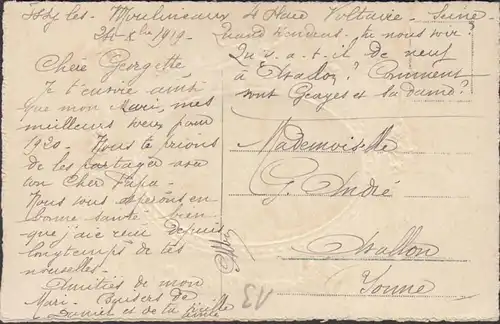 Issy les - Moulineaux 4 Place Voltaire - Seine
24 Xbre 1919 - Quand viendras-tu nous voir?
Chère Georgette
Je t'envoie ainsi
que mon Mari, mes
meilleurs vœux pour
1920 - Nous te prions
de les partager avec
ton Cher Papa -
Nous vous espérons en
bonne santé bien
que j'aie reçu depuis
longtemps de tes
nouvelles -
Amitiés de mon
Mari - Baisers de
Daniel et de ta vieille
amie
Qu'y a-t-il de neuf
à Avallon? Comment
sont Georges et sa dame?
Mademoiselle
G. André
Avallon
Yonne
13